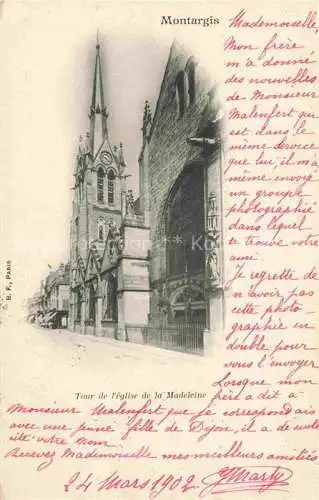 Montargis
Mademoiselle,
Mon frère
m'a donné
des nouvelles
de Monsieur
Malenfert qui
est dans le
même service
que lui, il m'a
même envoyé
un groupe
photographié
dans lequel
se trouve votre
ami.
Je regrette de
n'avoir pas
cette photo-
graphie en
double pour
vous l'envoyer
Lorsque mon
frère a dit à
Monsieur Malenfert que je correspondais
avec une jeune fille de Dijon, il a de suite
cité votre nom
Recevez Mademoiselle mes meilleures amitiés
24 Mars 1902 Marty
Tour de l'église de la Madeleine
B. F., PARIS